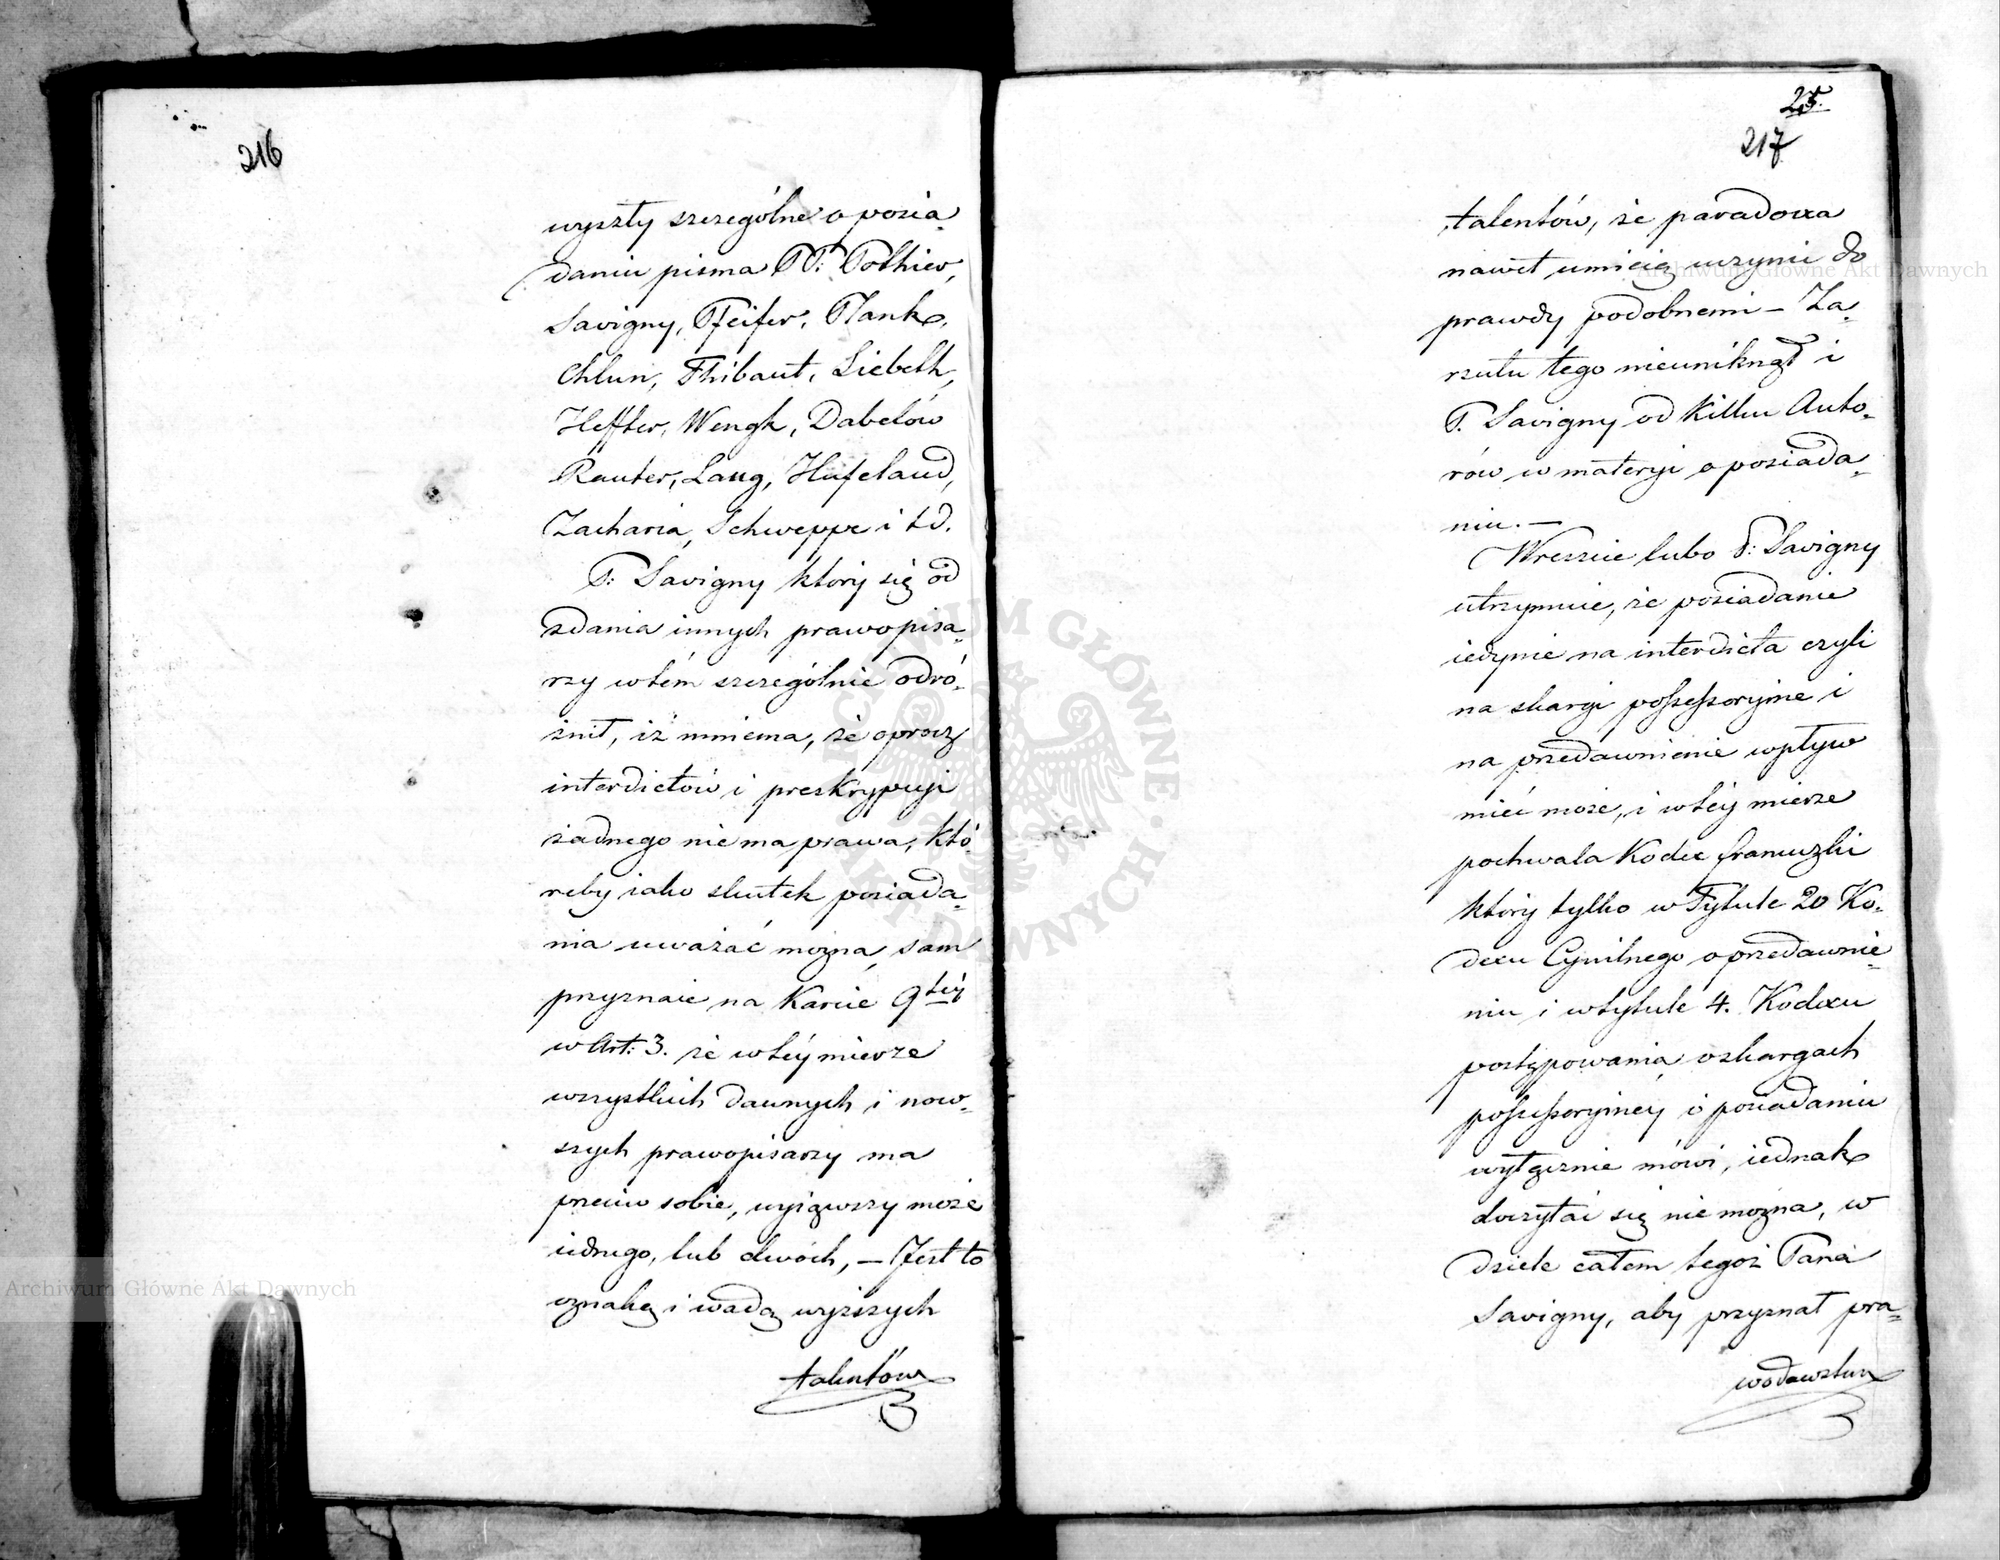 216
wyszły szczególne o posia„
daniu pisma PP: Pothier,
Savigny, Pfeifer, Plank,
Chlun, Thibaut, Liebeth,
Heffter, Wengk, Dabelow
Rauter, Lang, Hufeland,
Zacharia, Schweppe i td.
P: Savigny który się od
zdania innych prawopisa„
rzy w tém szczególnie odró„
żnił, iż mniema, że oprócz
interdictów i preskrypcyi
żadnego nie ma prawa, któ„
reby iako skutek posiada„
nia uważać można, sam
przyznaie na Karcie 9téy
w Art: 3. że w téy mierze
wszystkich dawnych i now„
szych prawopisarzy ma
przeciw sobie, wyiąwszy może
iednego, lub dwóch, — Jest to
oznaką i wadą wyższych
talentów
25.
217
talentów, że paradoxa
nawet umieią uczynić do
prawdy podobnemi — Za„
rzutu tego nieuniknął i
P. Savigny od kilku Auto„
rów w materyi o posiada„
niu. —
Wreszcie lubo P: Savigny
utrzymuie, że posiadanie
iedynie na interdicta czyli
na skargi possessoryjne i
na przedawnienie wpływ
mieć może, i w téy mierze
pochwala Kodex francuzki
który tylko w Tytule 20 Ko„
dexu Cywilnego o przedawnie„
niu i w tytule 4. Kodexu
postępowania o skargach
possessoryinéy o posiadaniu
wyłącznie mówi, iednak
doczytać się nie można, w
dziele całem tegoż Pana
Savigny, aby przyznał pra„
wodawstwu
Archiwum Główne Akt Dawnych
Archiwum Główne Akt Dawnych
ARCHIWUM GŁÓWNE AKT DAWNYCH